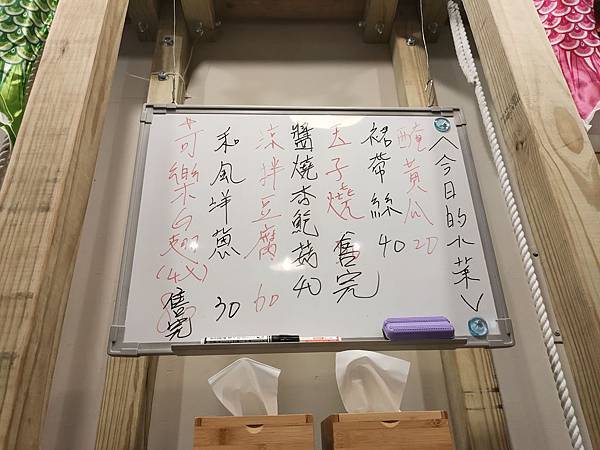 ＜今日的小菜＞
醃黃瓜 20
裙帶絲 40
玉子燒 售完
醬燒杏鮑菇 40
涼拌豆腐 60
和風洋蔥 30
可樂 翅(4入) 售完